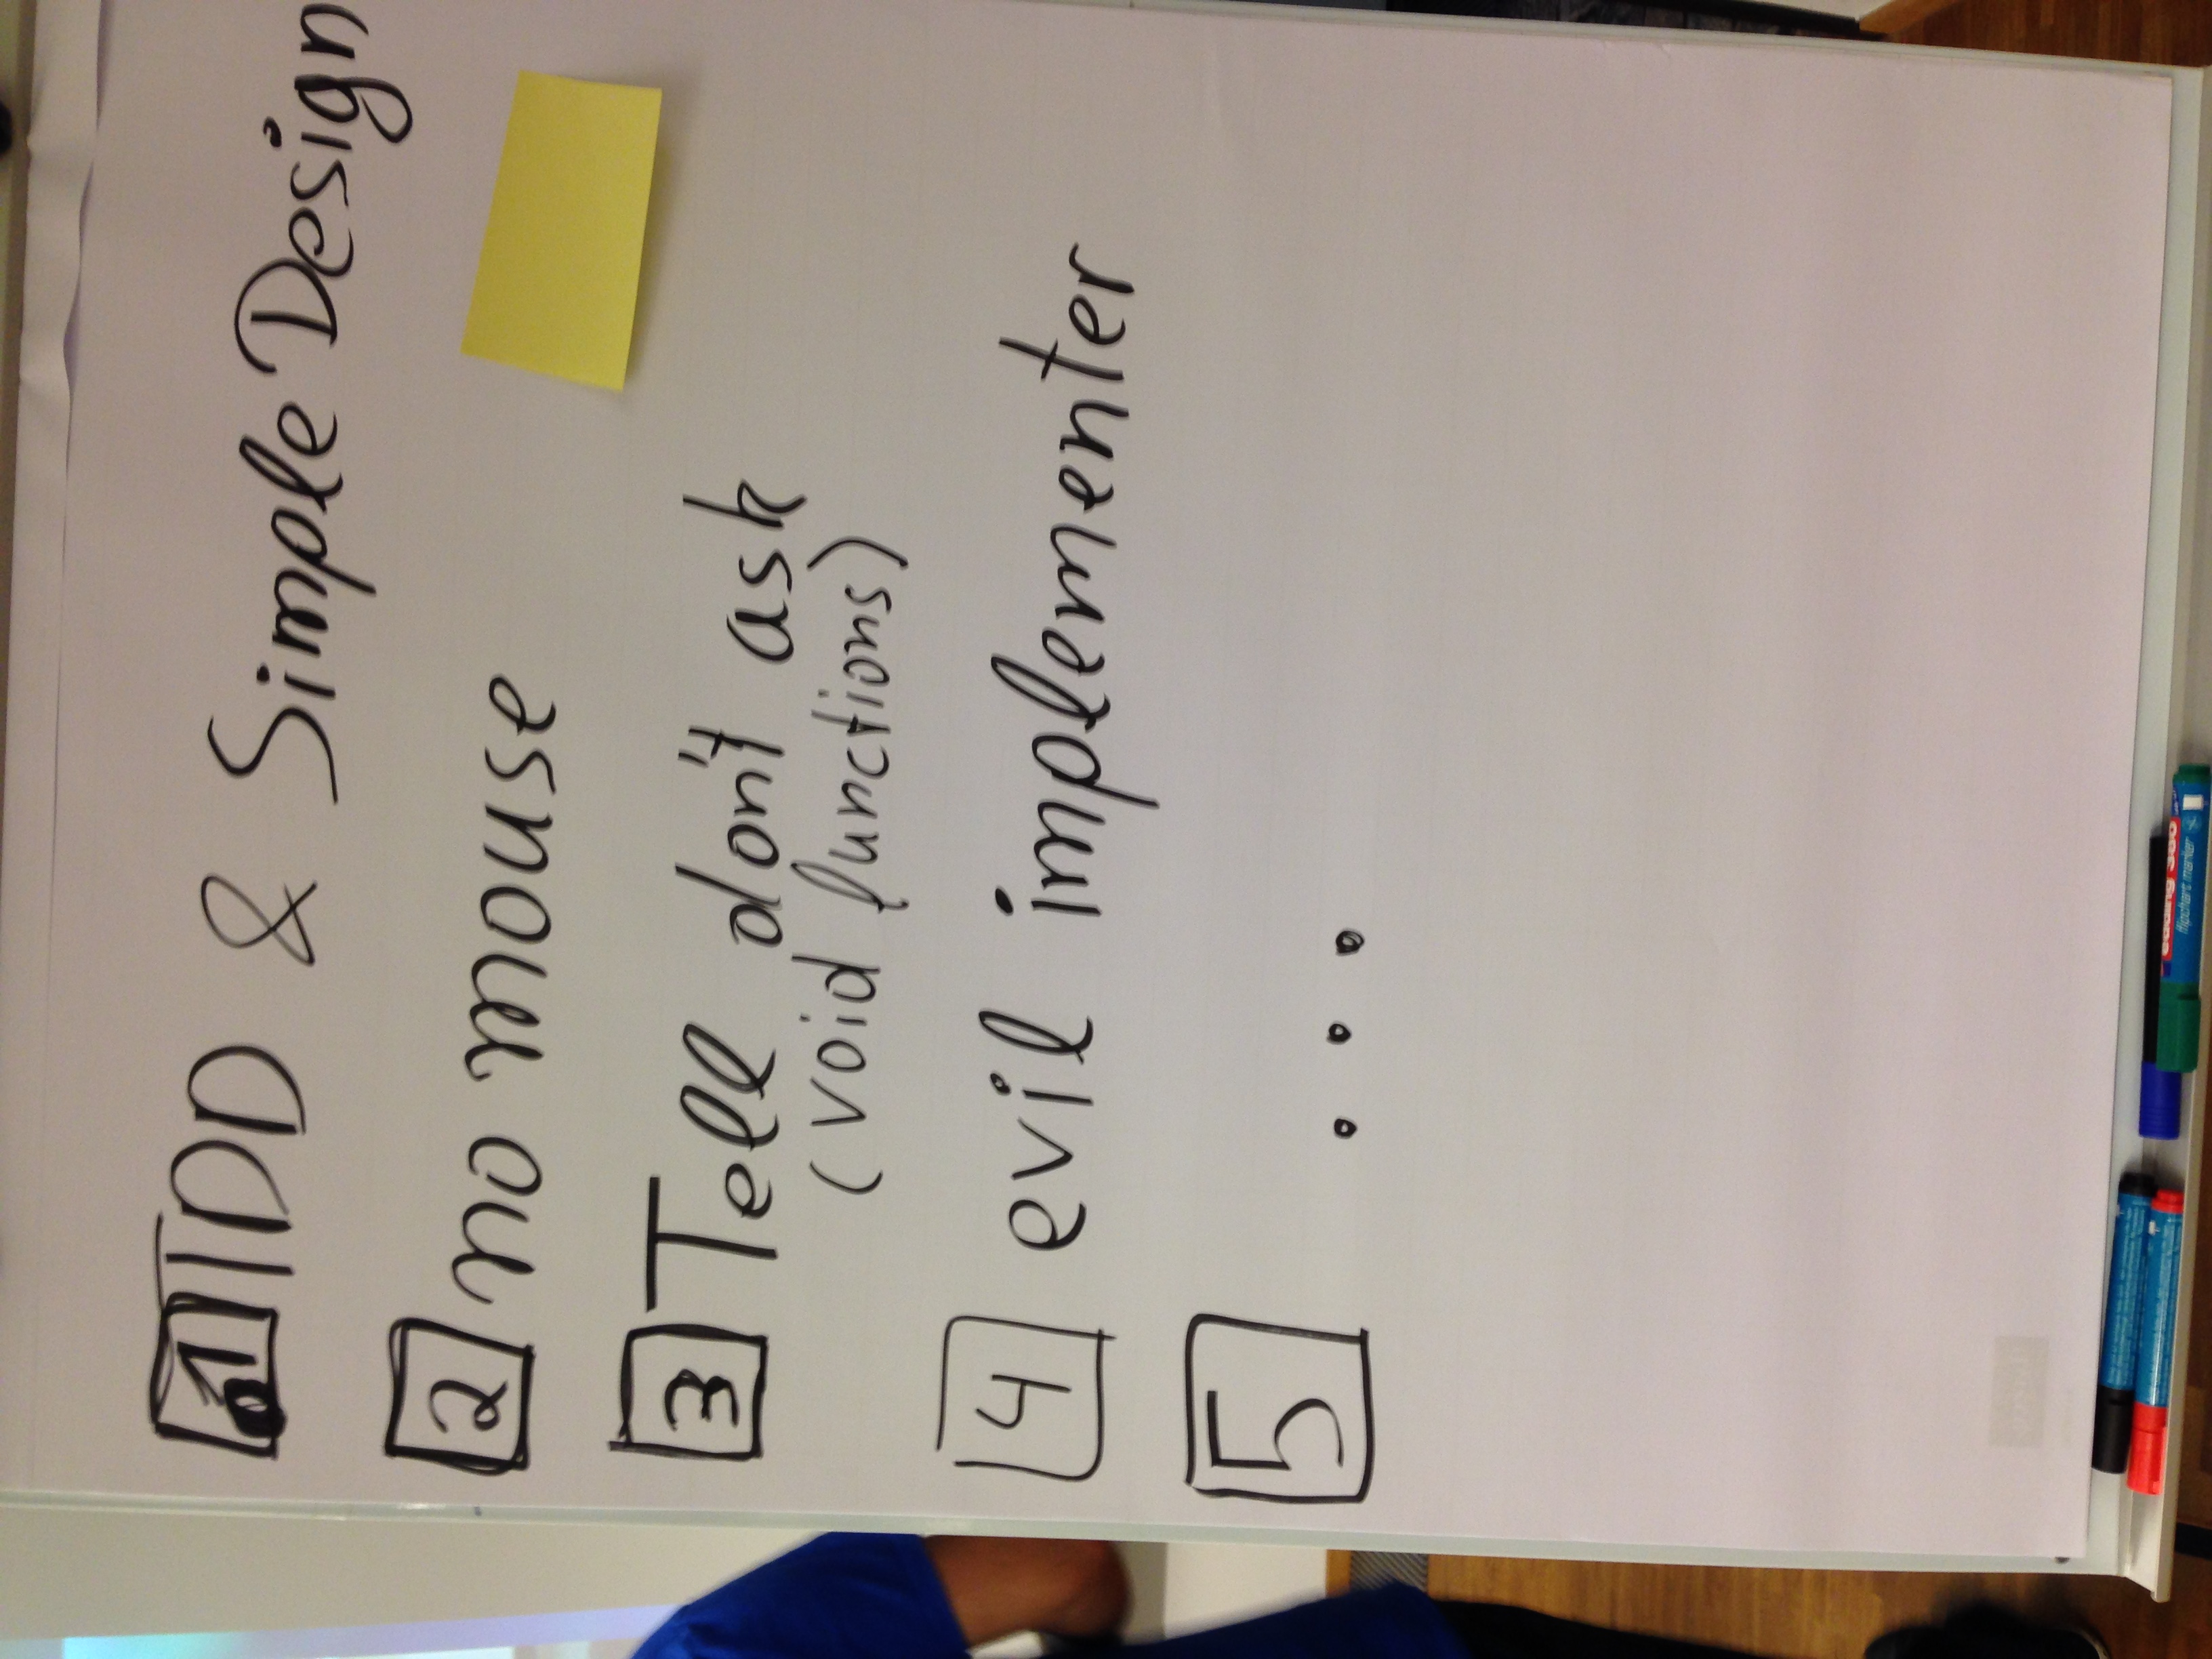 1 TDD & Simple Design
2 no mouse
3 Tell don't ask
(void functions)
4 evil implementer
5 ...
edding 380
flipchart marker